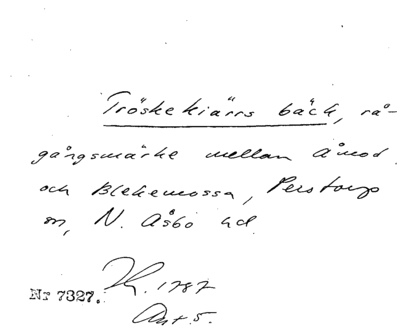 Tröskekiärrs bäck, rå-
gångsmärke mellan Åmod
och Blekemossa, Perstorps
sn, N. Åsbo hd.
Nr 7327. 1787
Akt 5.